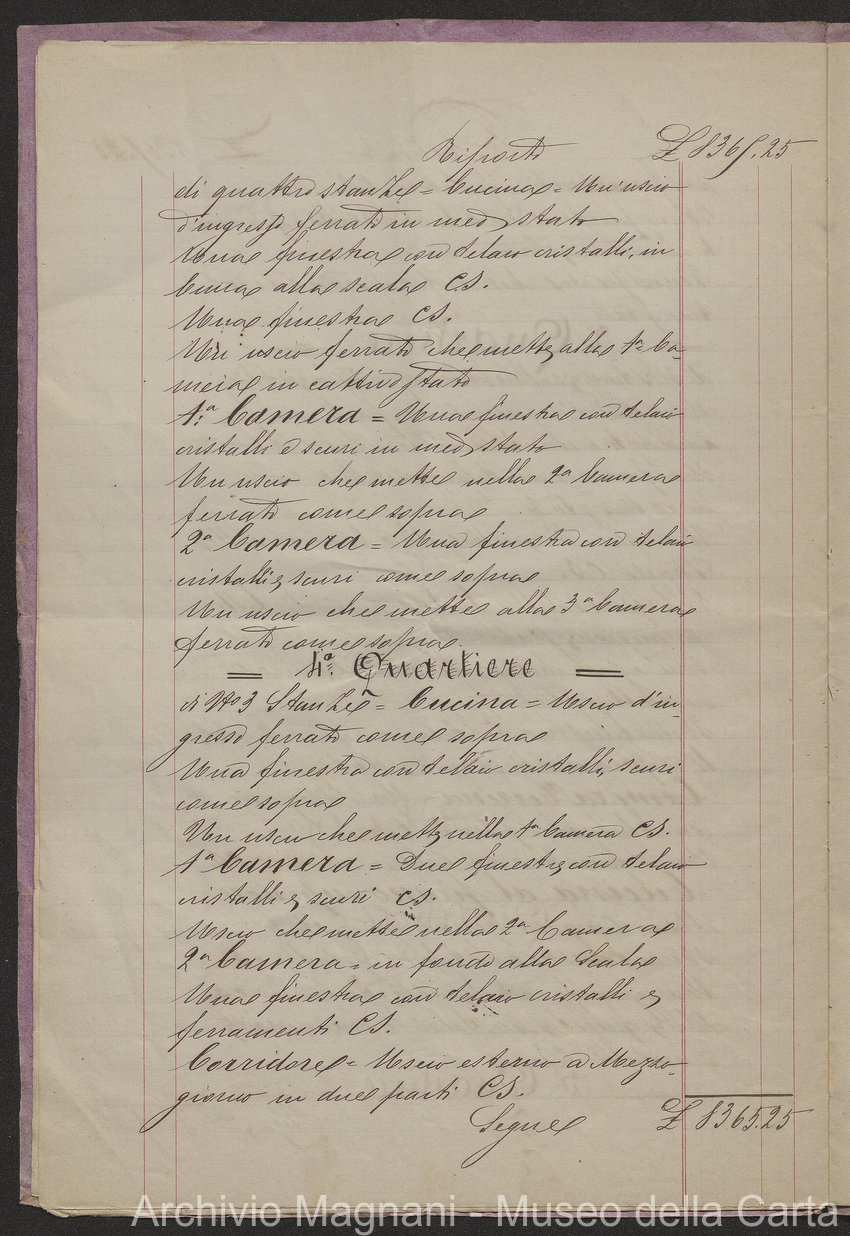 Riporto £ 8365.25
di quattro stanze = Cucina = Un'uscio
d'ingresso ferrato in med stato
Una finestra con telaio cristalli, in
cima alla scala CS.
Una finestra CS.
Un' uscio ferrato che mette alla 1ª Ca-
mera in cattivo stato
1.ª Camera = Una finestra con telaio
cristalli e scuri in med stato
Un uscio che mette nella 2ª Camera
ferrato come sopra
2ª Camera = Una finestra con telaio
cristalli e scuri come sopra
Un uscio che mette alla 3ª Camera
ferrato come sopra.
= 4ª Quartiere =
di No 3 Stanze = Cucina = Uscio d'in-
gresso ferrato come sopra
Una finestra con telaio cristalli, scuri
come sopra
Un uscio che mette nella 1ª Camera CS.
1ª Camera = Due finestre con telaio
cristalli e scuri CS.
Uscio che mette nella 2ª Camera
2ª Camera = in fondo alla Scala
Una finestra con telaio cristalli e
ferramenti CS.
Corridore = Uscio esterno a Mezzo-
giorno in due parti CS.
Segue £ 8365.25
Archivio Magnani - Museo della Carta